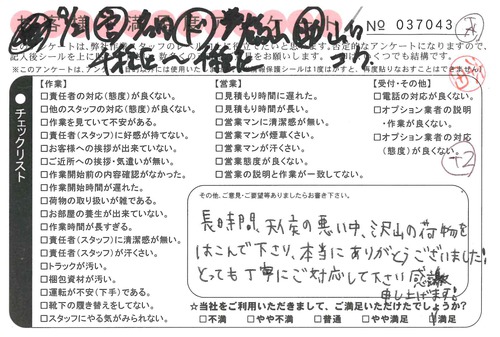 お客様満足度アンケート
№ 037043
9/21
千種区〜千種区
このアンケートは、弊社作業スタッフのレベル向上に役立てたいと思います。否定的なアンケートになりますので、
【作業】
□責任者の対応（態度）が良くない。
□他のスタッフの対応（態度）が良くない。
□作業を見ていて不安がある。
□責任者（スタッフ）に好感が持てない。
□お客様への挨拶が出来ていない。
□ご近所への挨拶・気遣いが無い。
□作業開始前の内容確認がなかった。
□作業開始時間が遅れた。
□荷物の取り扱いが雑である。
□お部屋の養生が出来ていない。
□作業時間が長すぎる。
□責任者（スタッフ）に清潔感が無い。
□責任者（スタッフ）が汗くさい。
□トラックが汚い。
□梱包資材が汚い。
□運転が不安（下手）である。
□靴下の履き替えをしてない。
□スタッフにやる気がみられない。
【営業】
□見積もり時間に遅れた。
□見積もり時間が長い。
□営業マンに清潔感が無い。
□営業マンが煙草くさい。
□営業マンが汗くさい。
□営業態度が良くない。
□営業の説明と作業が一致してない。
【受付・その他】
□電話の対応が良くない。
□オプション業者の説明
・作業が良くない。
□オプション業者の対応
（態度）が良くない。
+2
チェックリスト
その他、ご意見・ご要望等ありましたらお書き下さい。
長時間、天候の悪い中、沢山の荷物を
はこんで下さり、本当にありがとうございました！
とっても丁寧にご対応して下さい感謝
申し上げます！
☆当社をご利用いただきまして、ご満足いただけたでしょうか？
□不満 □やや不満 □普通 □やや満足 □満足